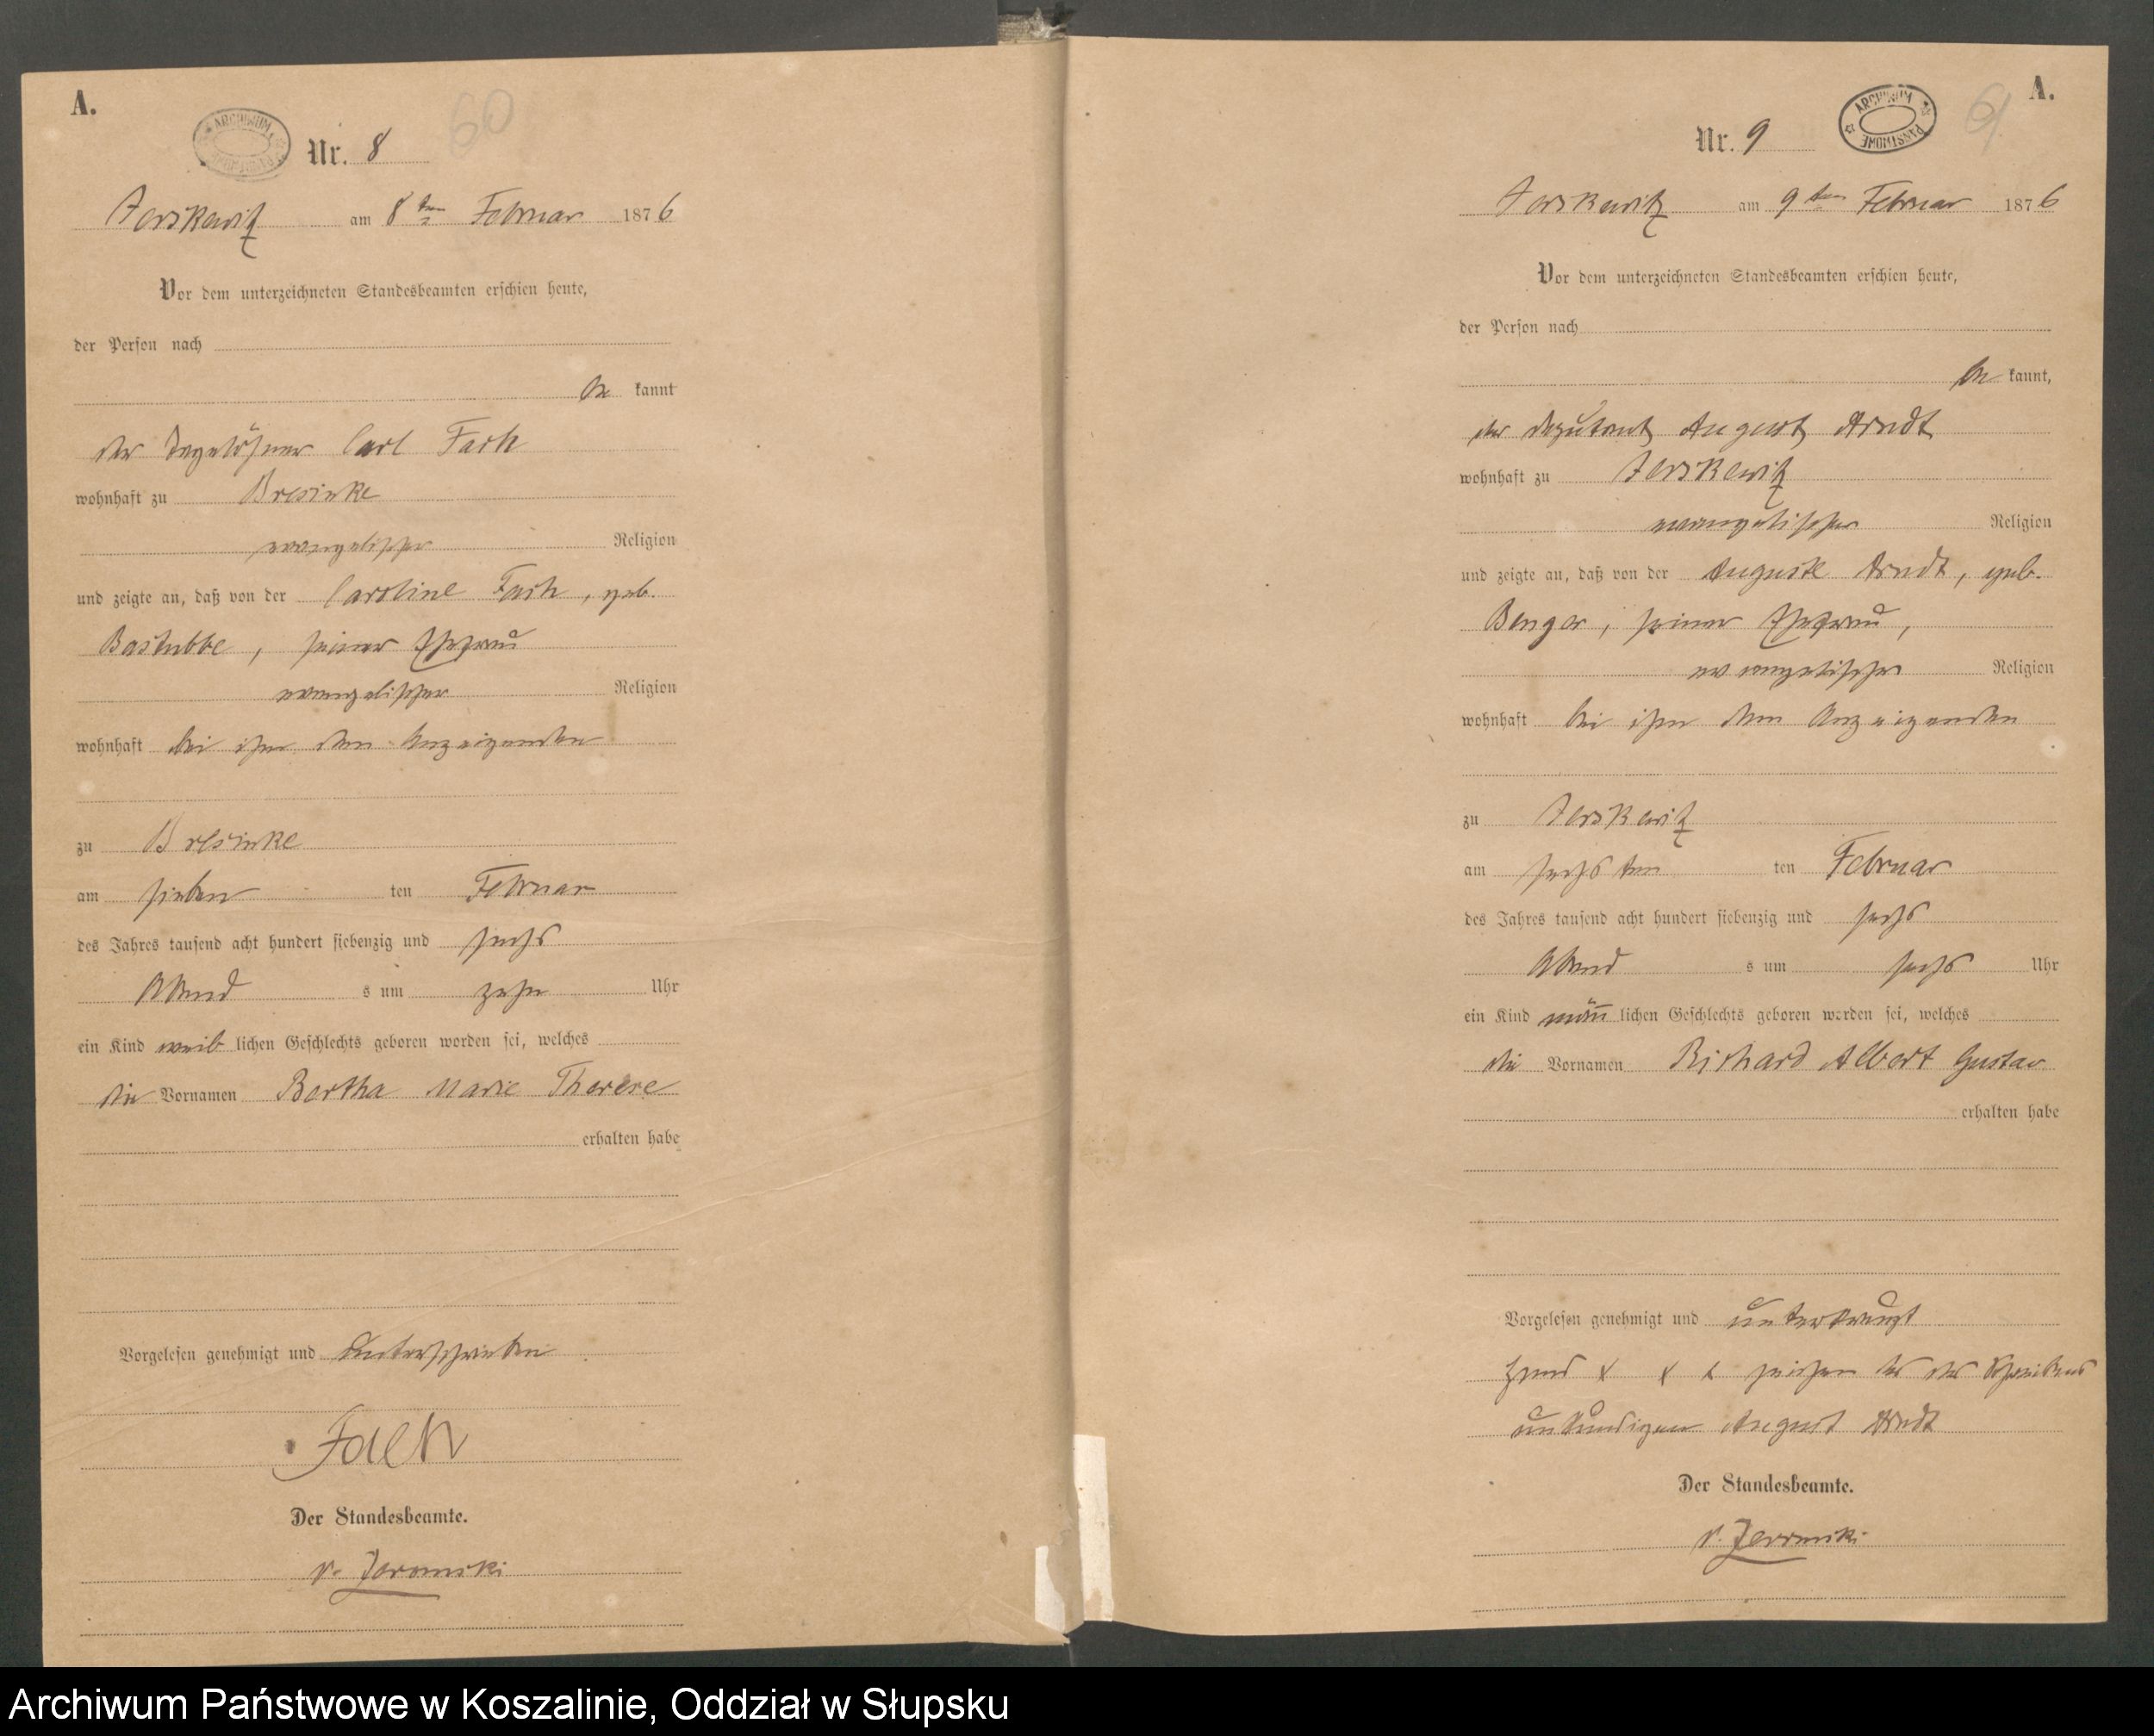 A.
ARCHIWUM PAŃSTWOWE
60
Nr. 8
Jerskewitz am 8ten Februar 1876
Vor dem unterzeichneten Standesbeamten erschien heute,
der Person nach
be kannt
der Tagelöhner Carl Fach
wohnhaft zu Bresinke
evangelischer Religion
und zeigte an, daß von der Caroline Fach, geb.
Bastubbe, seiner Ehefrau
evangelischer Religion
wohnhaft bei ihm dem Anzeigenden
zu Bresinke
am sieben ten Februar
des Jahres tausend acht hundert siebenzig und sechs
Abend s um zehn Uhr
ein Kind weib lichen Geschlechts geboren worden sei, welches
die Vornamen Bertha Marie Therese
erhalten habe
Vorgelesen genehmigt und unterschrieben
Fach
Der Standesbeamte.
v.
A.
ARCHIWUM PAŃSTWOWE
61
Nr. 9
Jerskewitz am 9ten Februar 1876
Vor dem unterzeichneten Standesbeamten erschien heute,
der Person nach
be kannt,
der Deputant August Arndt
wohnhaft zu Jerskewitz
evangelischer Religion
und zeigte an, daß von der Auguste Arndt, geb.
Benger, seiner Ehefrau,
evangelischer Religion
wohnhaft bei ihm dem Anzeigenden
zu Jerskewitz
am sechs ten ten Februar
des Jahres tausend acht hundert siebenzig und sechs
Abend s um sechs Uhr
ein Kind männ lichen Geschlechts geboren worden sei, welches
die Vornamen Richard Albert Gustav
erhalten habe
Vorgelesen genehmigt und unterkreuzt
Hand x x x zeichen des des Schreibens
unkundigen August Arndt
Der Standesbeamte.
v.
Archiwum Państwowe w Koszalinie, Oddział w Słupsku